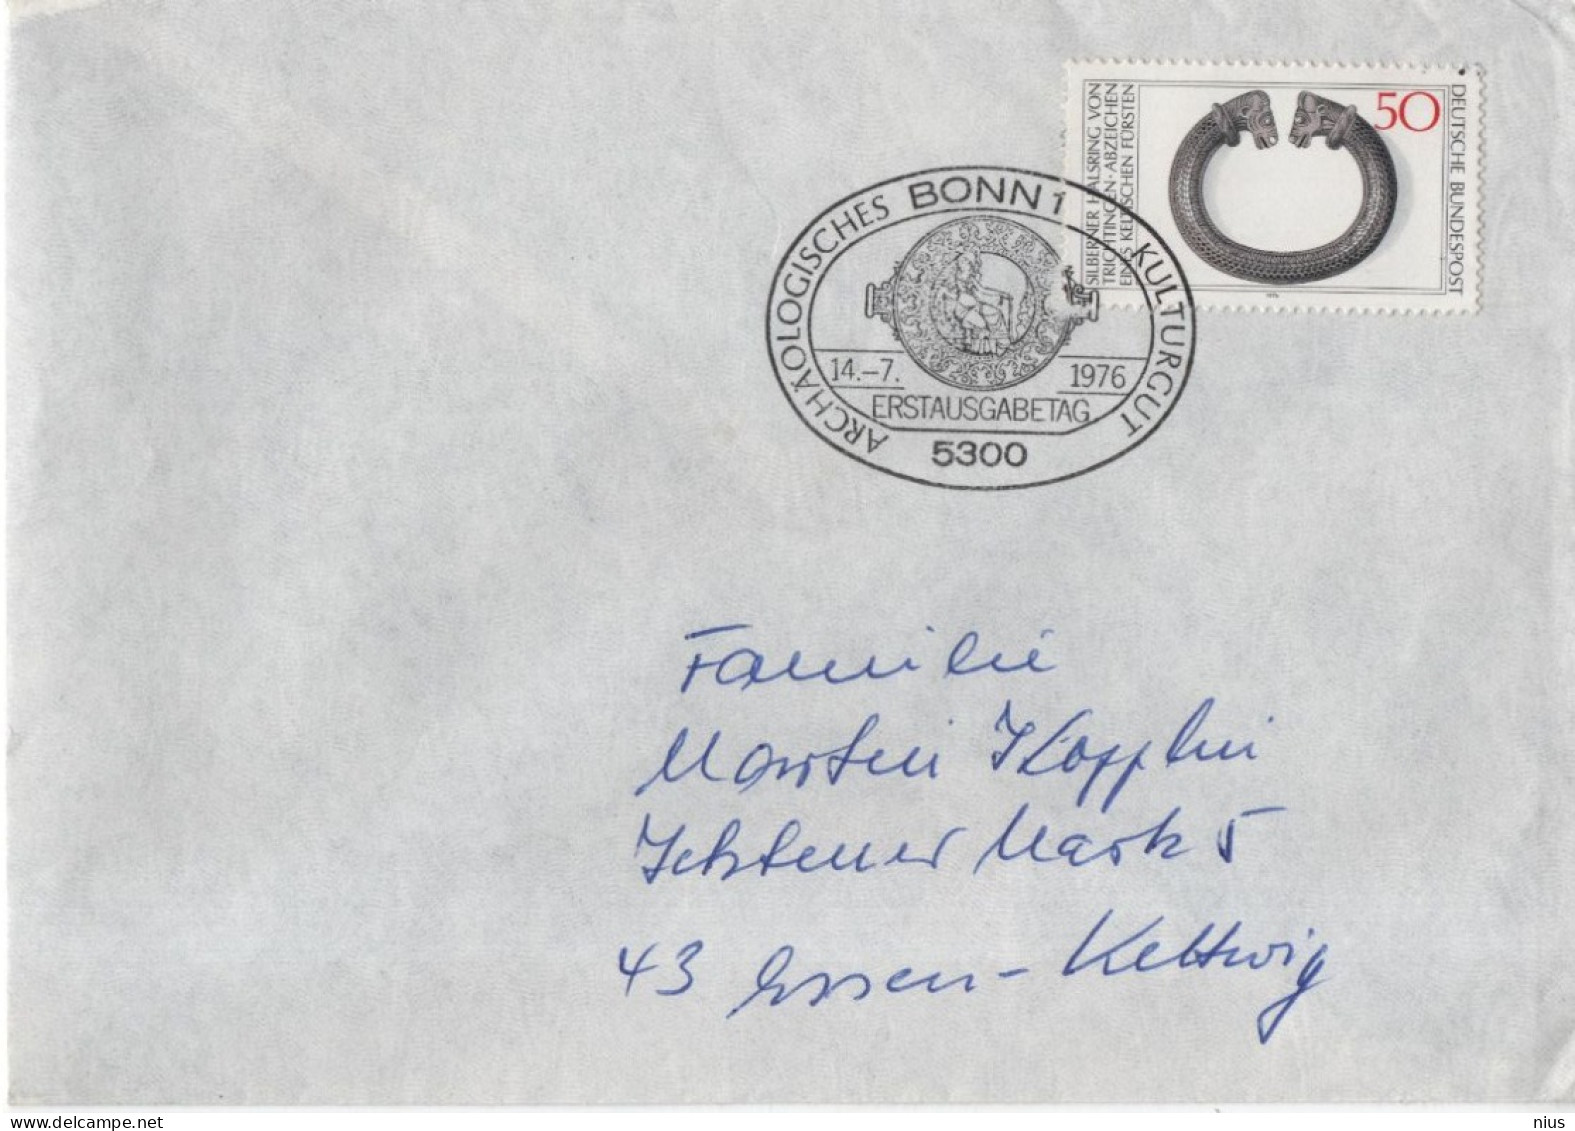 50
DEUTSCHE BUNDESPOST
SILBERNER HALSRING VON
TRICHTINGEN · ABZEICHEN
EINES KELTISCHEN FÜRSTEN
BONN 1
ARCHÄOLOGISCHES KULTURGUT
14.–7. 1976
ERSTAUSGABETAG
5300
Familie
Martin Kopplin
Icktener Mark 5
43 Essen-Kettwig
www.delcampe.net
nius